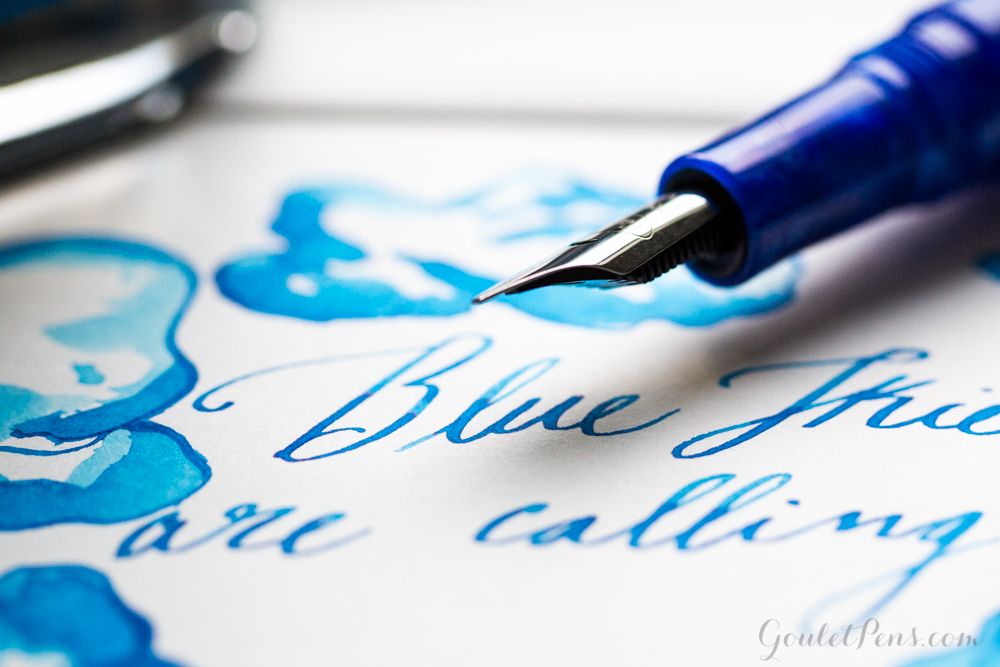 Blue Frie
are calling
GouletPens.com